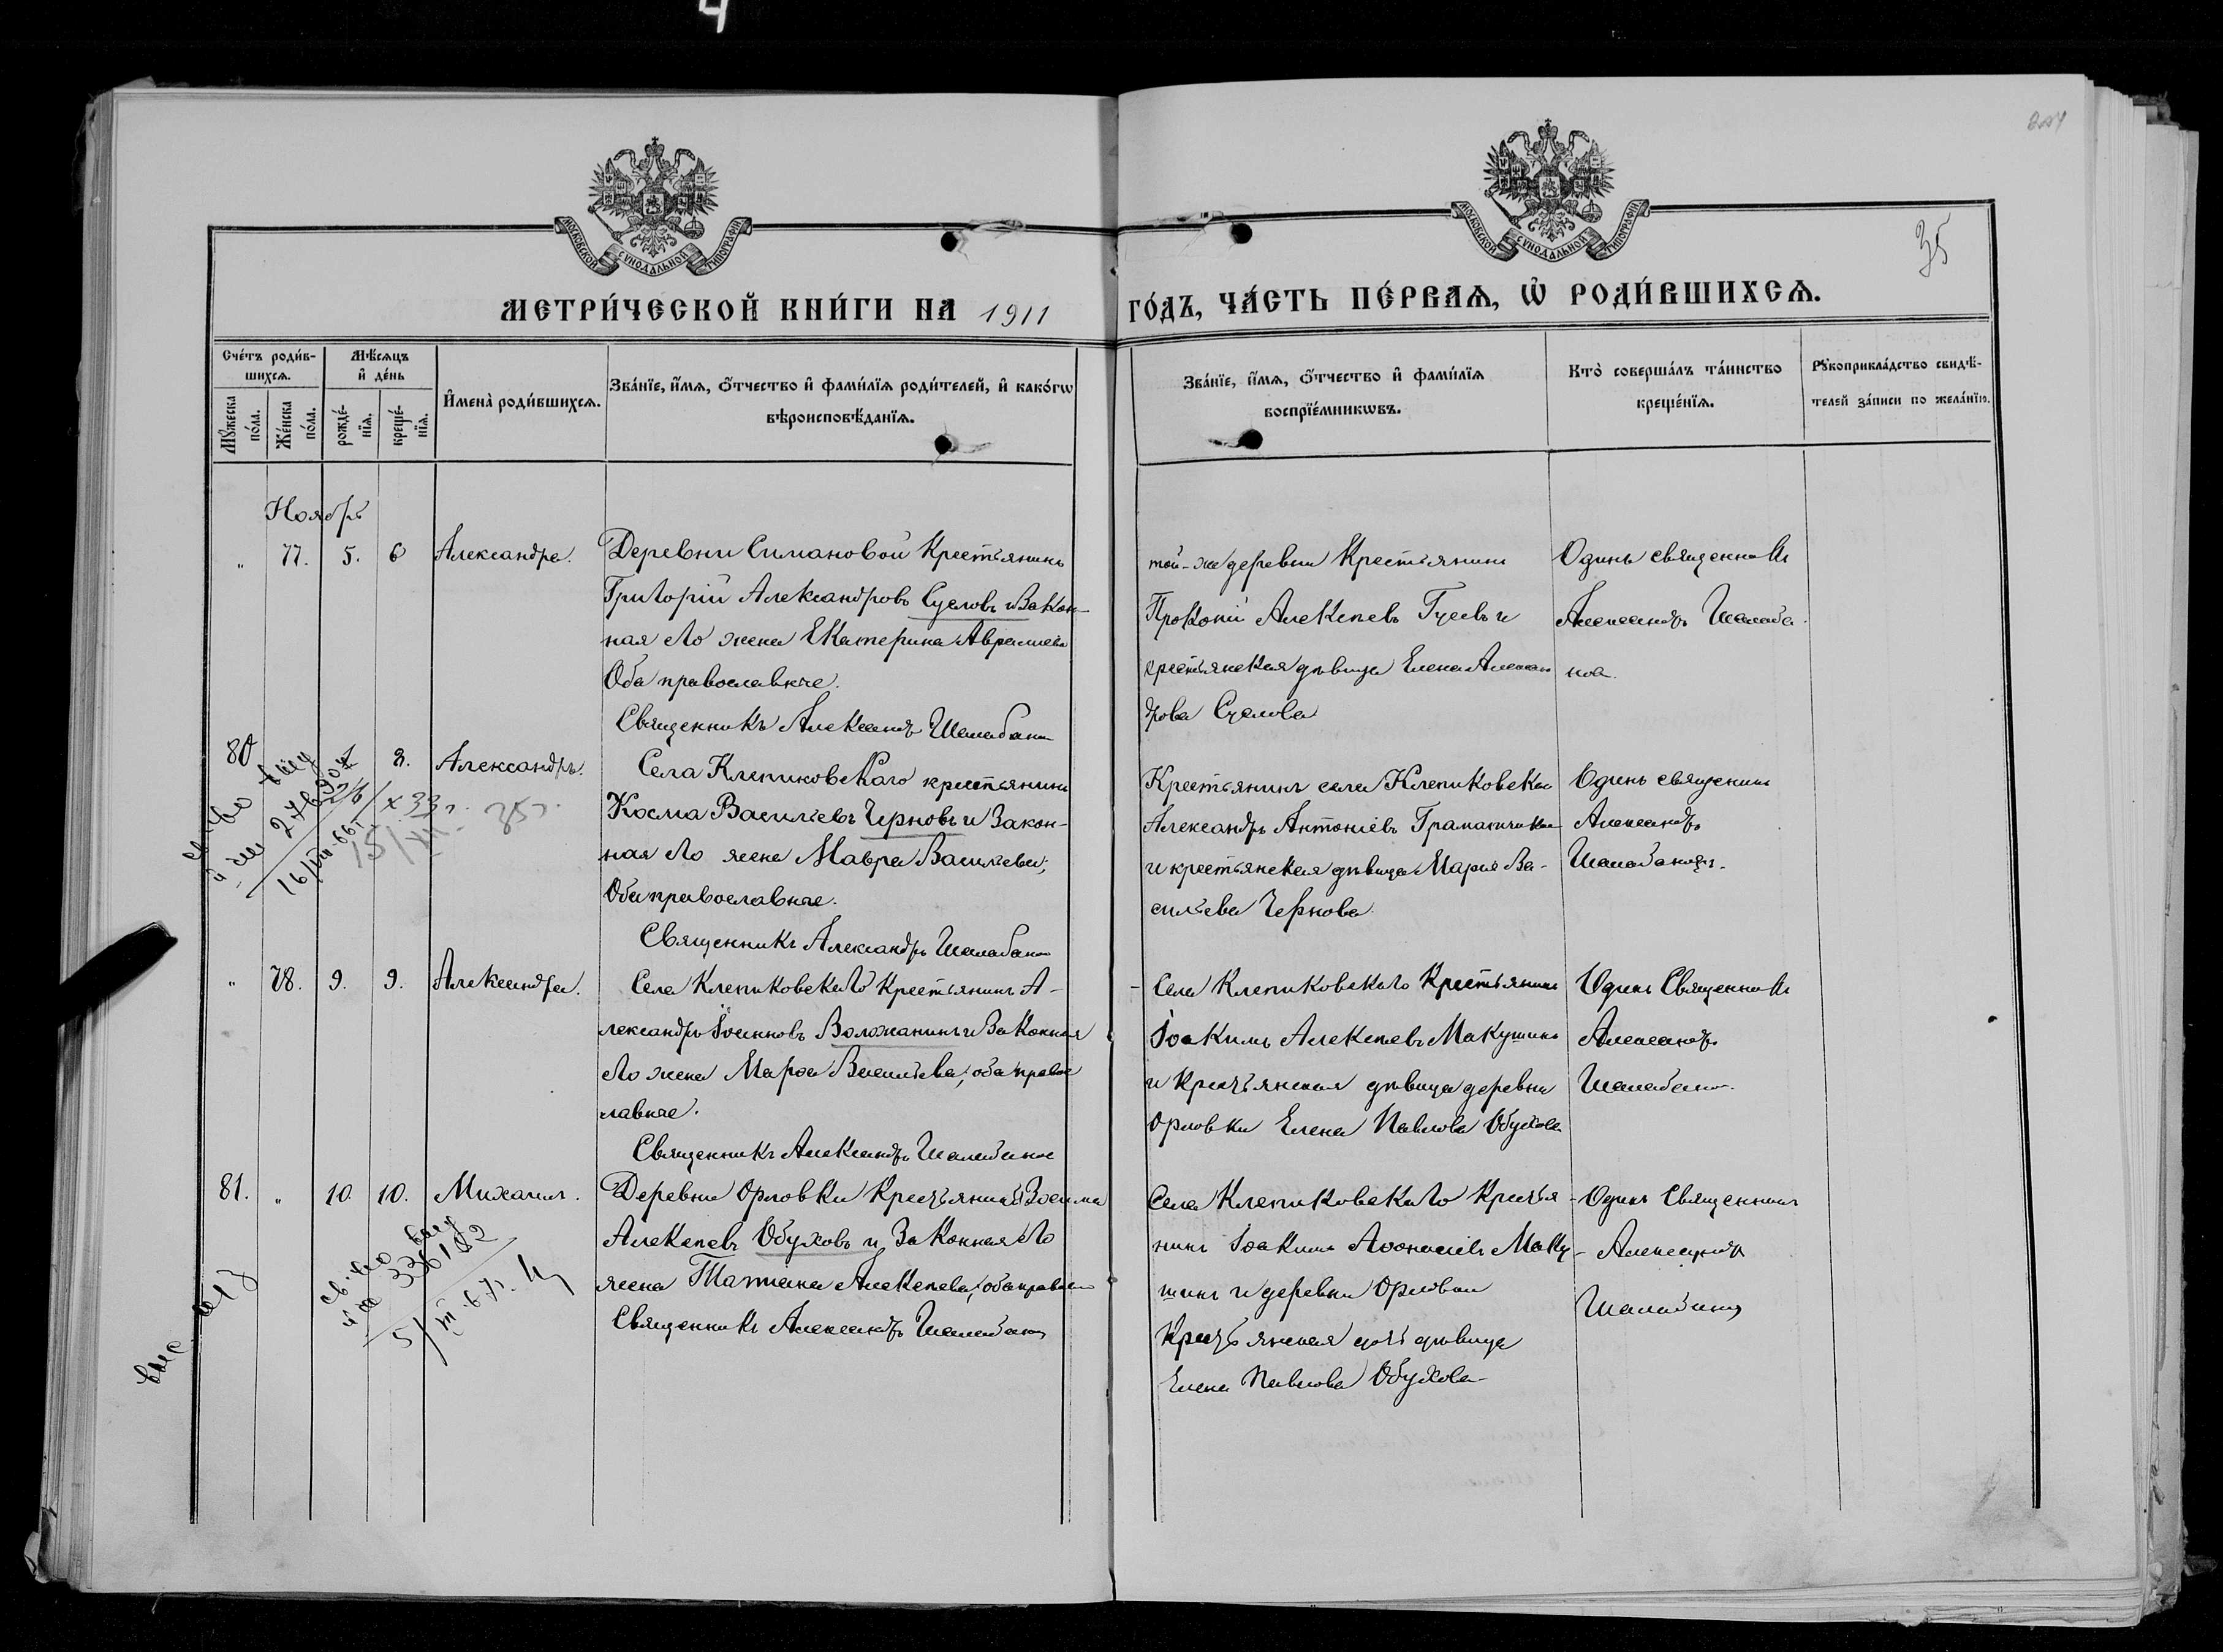 4
35
МОСКОВСКОЙ СѴНОДАЛЬНОЙ ТИПОГРАФІИ
МОСКОВСКОЙ СѴНОДАЛЬНОЙ ТИПОГРАФІИ
МЕТРИ́ЧЕСКОЙ КНИ́ГИ НА 1911 ГО́ДЪ, ЧА́СТЬ ПЕ́РВАѦ, Ѡ҆ РОДИ́ВШИХСѦ.
Сче́тъ роди́в-
шихсѧ.
Мѣ́сѧцъ
и҆ де́нь
Мꙋ́жеска
по́ла.
Же́нска
по́ла.
рожде́-
нїѧ.
креще́-
нїѧ.
И҆мена̀ роди́вшихсѧ.
Зва́нїе, и҆́мѧ, ѻ҆́тчество и҆ фами́лїѧ роди́телей, и҆ како́гѡ
вѣроисповѣ́данїѧ.
Зва́нїе, и҆́мѧ, ѻ҆́тчество и҆ фами́лїѧ
воспрїе́мникѡвъ.
Кто̀ соверша́лъ та́инство
креще́нїѧ.
Рꙋкоприкла́дство свидѣ́-
телей за́писи по жела́нїю.
Ноябрь
" 77. 5. 6 Александра.
Деревни Симановой Крестьянинъ
Григорій Александровъ Сусловъ и Закон-
ная его жена Екатерина
Оба православные.
Священникъ Александръ
той-же деревни Крестьянинъ
Прокопій Алексѣевъ Гусевъ и
крестьянская дѣвица Елена Алексан
дрова Суслова
Одинъ священникъ
Александръ
80 8. Александръ.
Села Клепиковскаго крестьянинъ
Косма Васильевъ Черновъ и Закон-
ная его жена Мавра Васильева,
Оба православные.
Священникъ Александръ
Крестьянинъ села Клепиковска
Александръ Антоніевъ
и крестьянская дѣвица Марія Ва-
сильева Чернова.
Одинъ священникъ
Александръ
16/VII-66г
" 78. 9. 9. Александра.
Села Клепиковскаго Крестьянинъ А-
лександръ Іоанновъ Волжанинъ и Законная
его жена Марѳа Васильева, оба правос
лавные.
Священникъ Александръ
Села Клепиковскаго Крестьянинъ
Іоакимъ Алексѣевъ Макушинъ
и Крестьянская дѣвица деревни
Орловки Елена Павлова Обухова
Одинъ Священникъ
Александръ
81. " 10. 10. Михаилъ.
Деревни Орловки Крестьянинъ Зосима
Алексѣевъ Обуховъ и Законная его
жена Татіана Алексѣева, оба правосл
Священникъ Александръ
Села Клепиковскаго Крестья-
нинъ Іоакимъ Аѳонасіевъ Маку-
шинъ и деревни Орловки
Крестьянская дочь дѣвица
Елена Павлова Обухова
Одинъ Священникъ
Александръ
336182